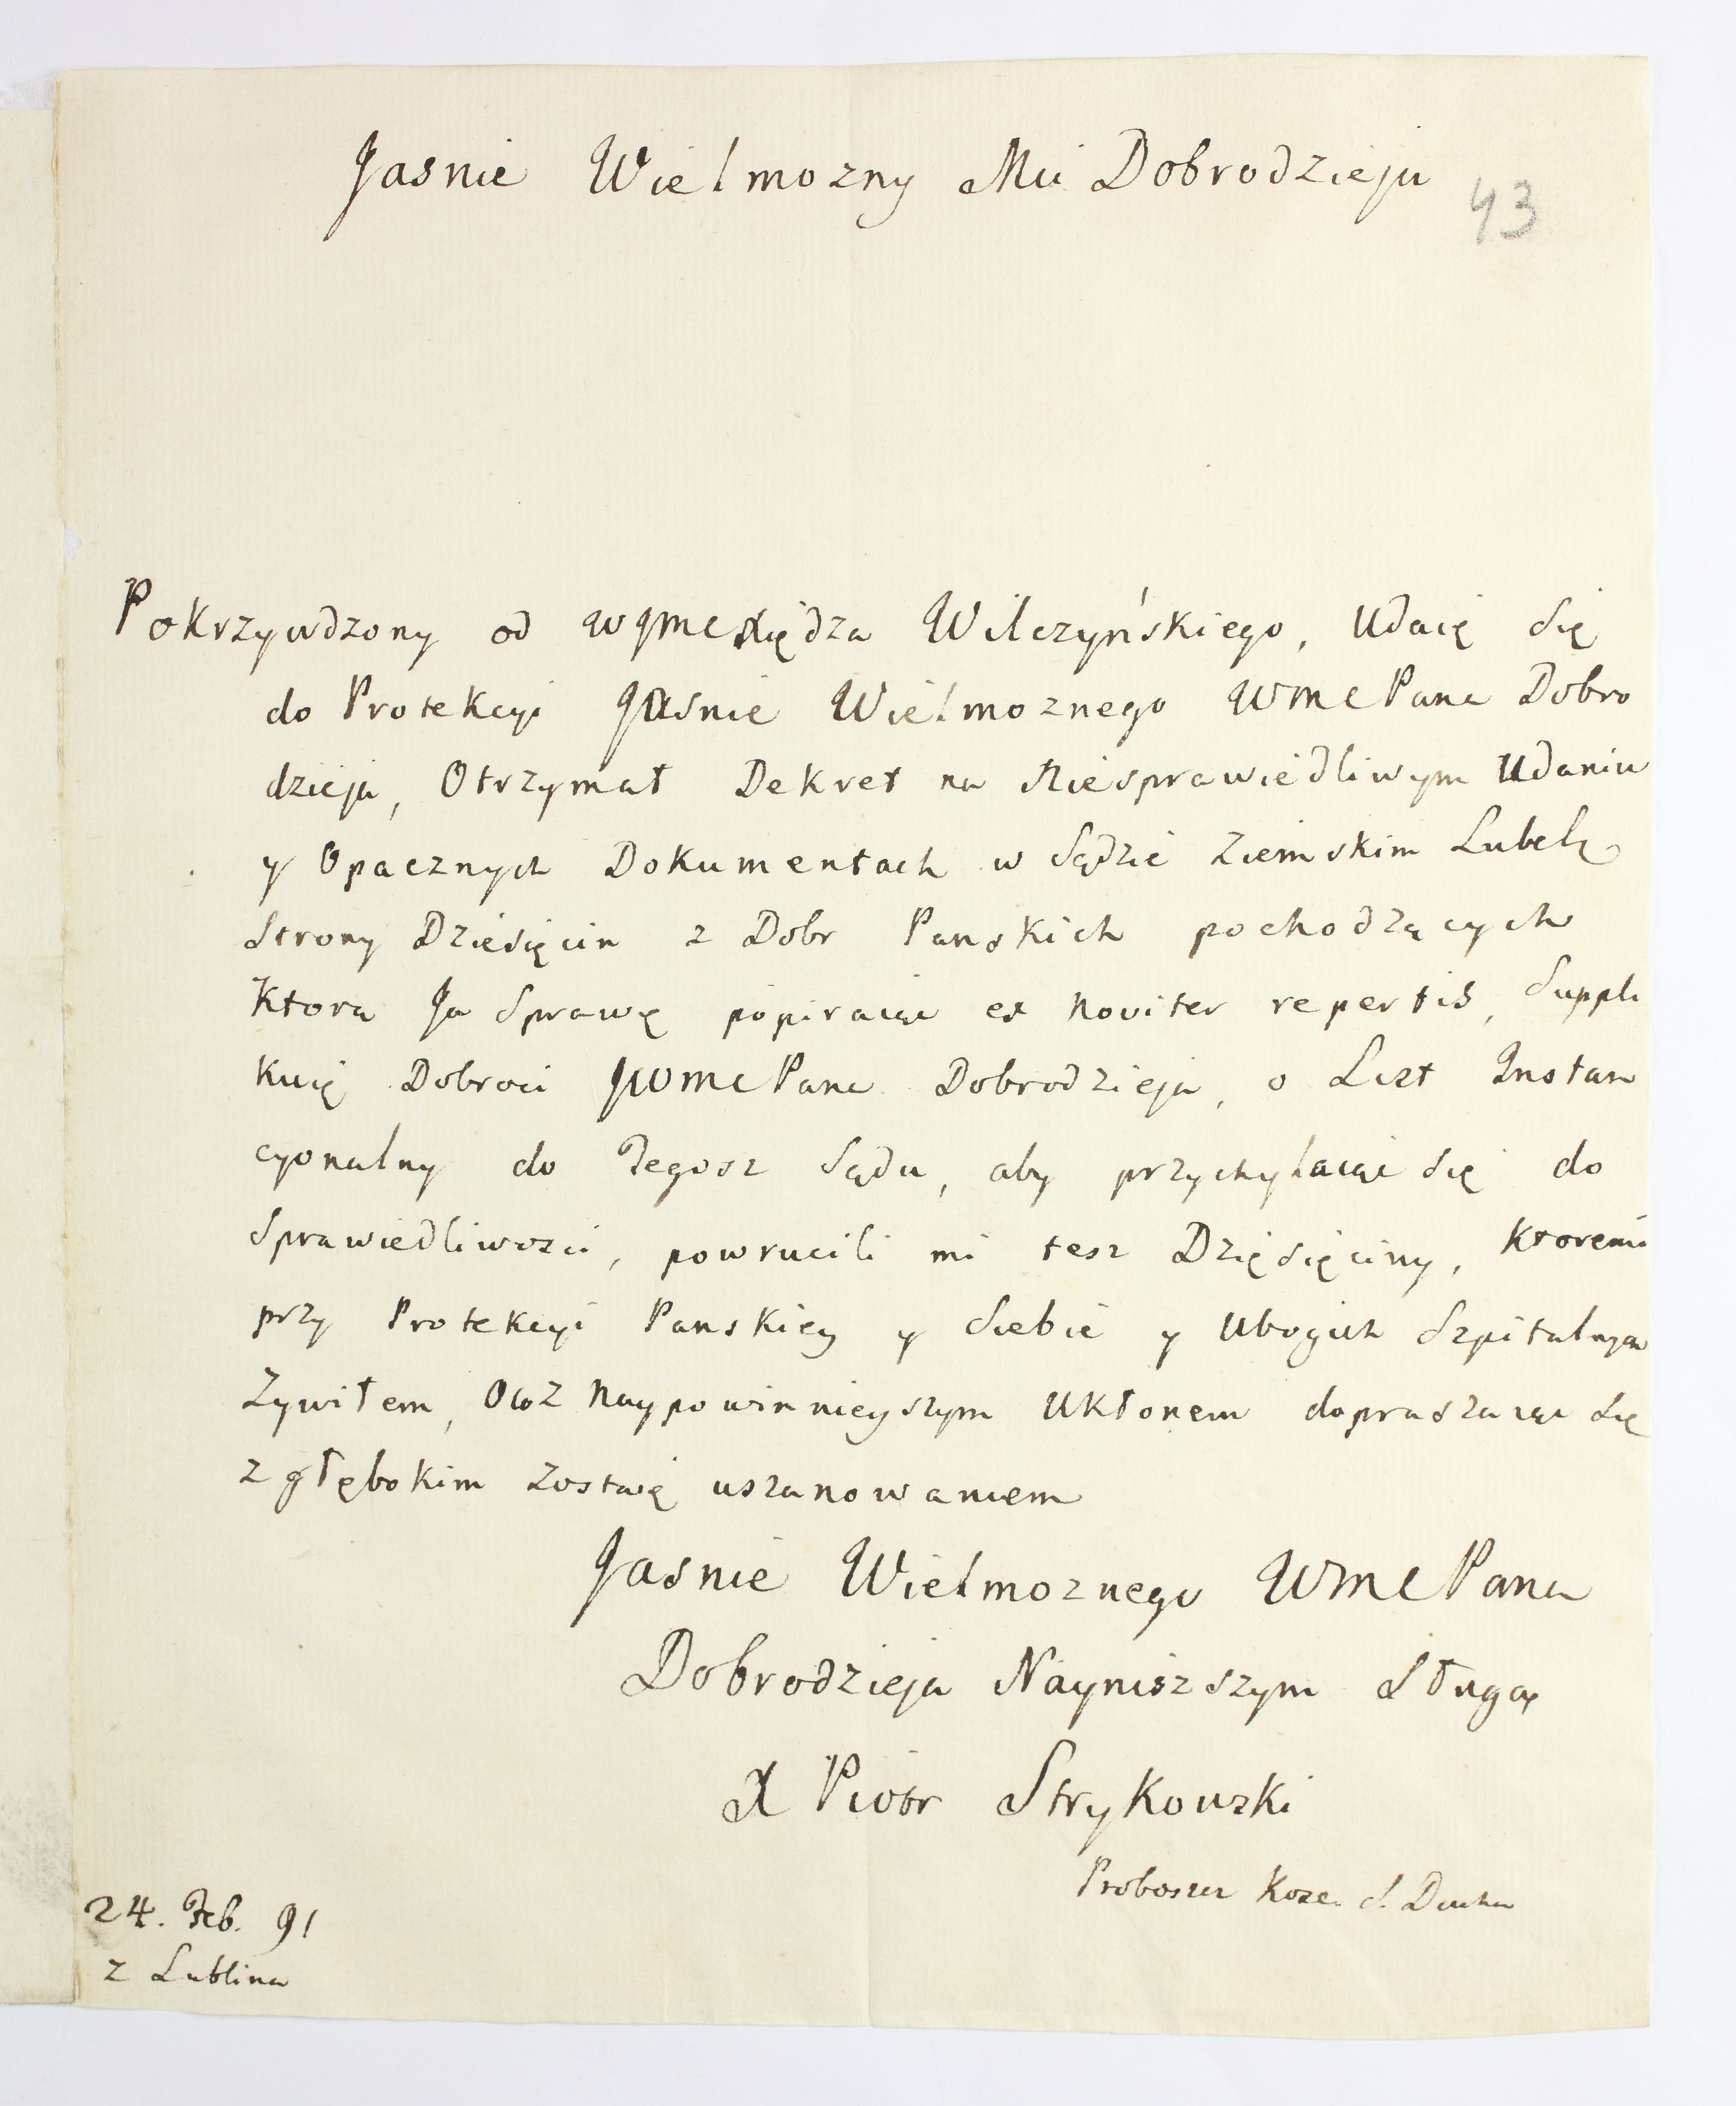 Jasnie Wielmozny Mci Dobrodzieju
43
Pokrzywdzony od WJmcXiędza Wilczyńskiego, Udaię Się
do Protekcyi Jasnie Wielmoznego WmcPana Dobro
dzieja, Otrzymał Dekret na Niesprawiedliwym Udaniu
y Opacznych Dokumentach w Sądzie Ziemskim Lubelz
Strony Dziesięcin z Dobr Panskich pochodzących
Ktora Ja Sprawę popiraiąc ex Noviter repertis, Suppli
kuię Dobroci JWmcPana Dobrodzieja, o List Instan
cyonalny do Tegosz Sądu, aby przychylaiąc się do
Sprawiedliwosci, powrucili mi tesz Dzięsięciny, Ktoremi
przy Protekcyi Panskiey y Siebie y Ubogich Szpitalnych
Zywiłem, Ocoż Naypowinnieyszym Ukłonem dopraszaiąc Się
z głębokim zostaię uszanowaniem
Jasnie Wielmoznego WmcPana
Dobrodzieja Nayniszszym Sługą
X Piotr Strykowski
Proboszcz Kosc. S. Ducha
24. Feb. 91
z Lublina